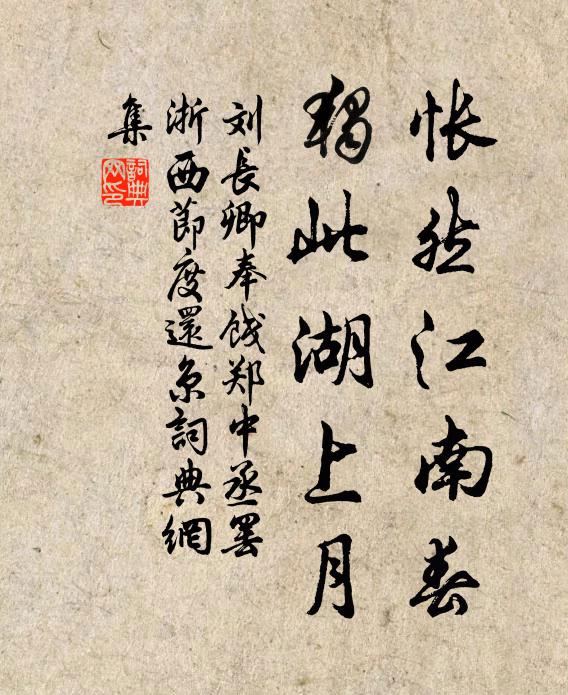 怅然江南春
独此湖上月
刘長卿奉餞郑中丞罢
浙西節度還京詞典網
集
詞典
网印